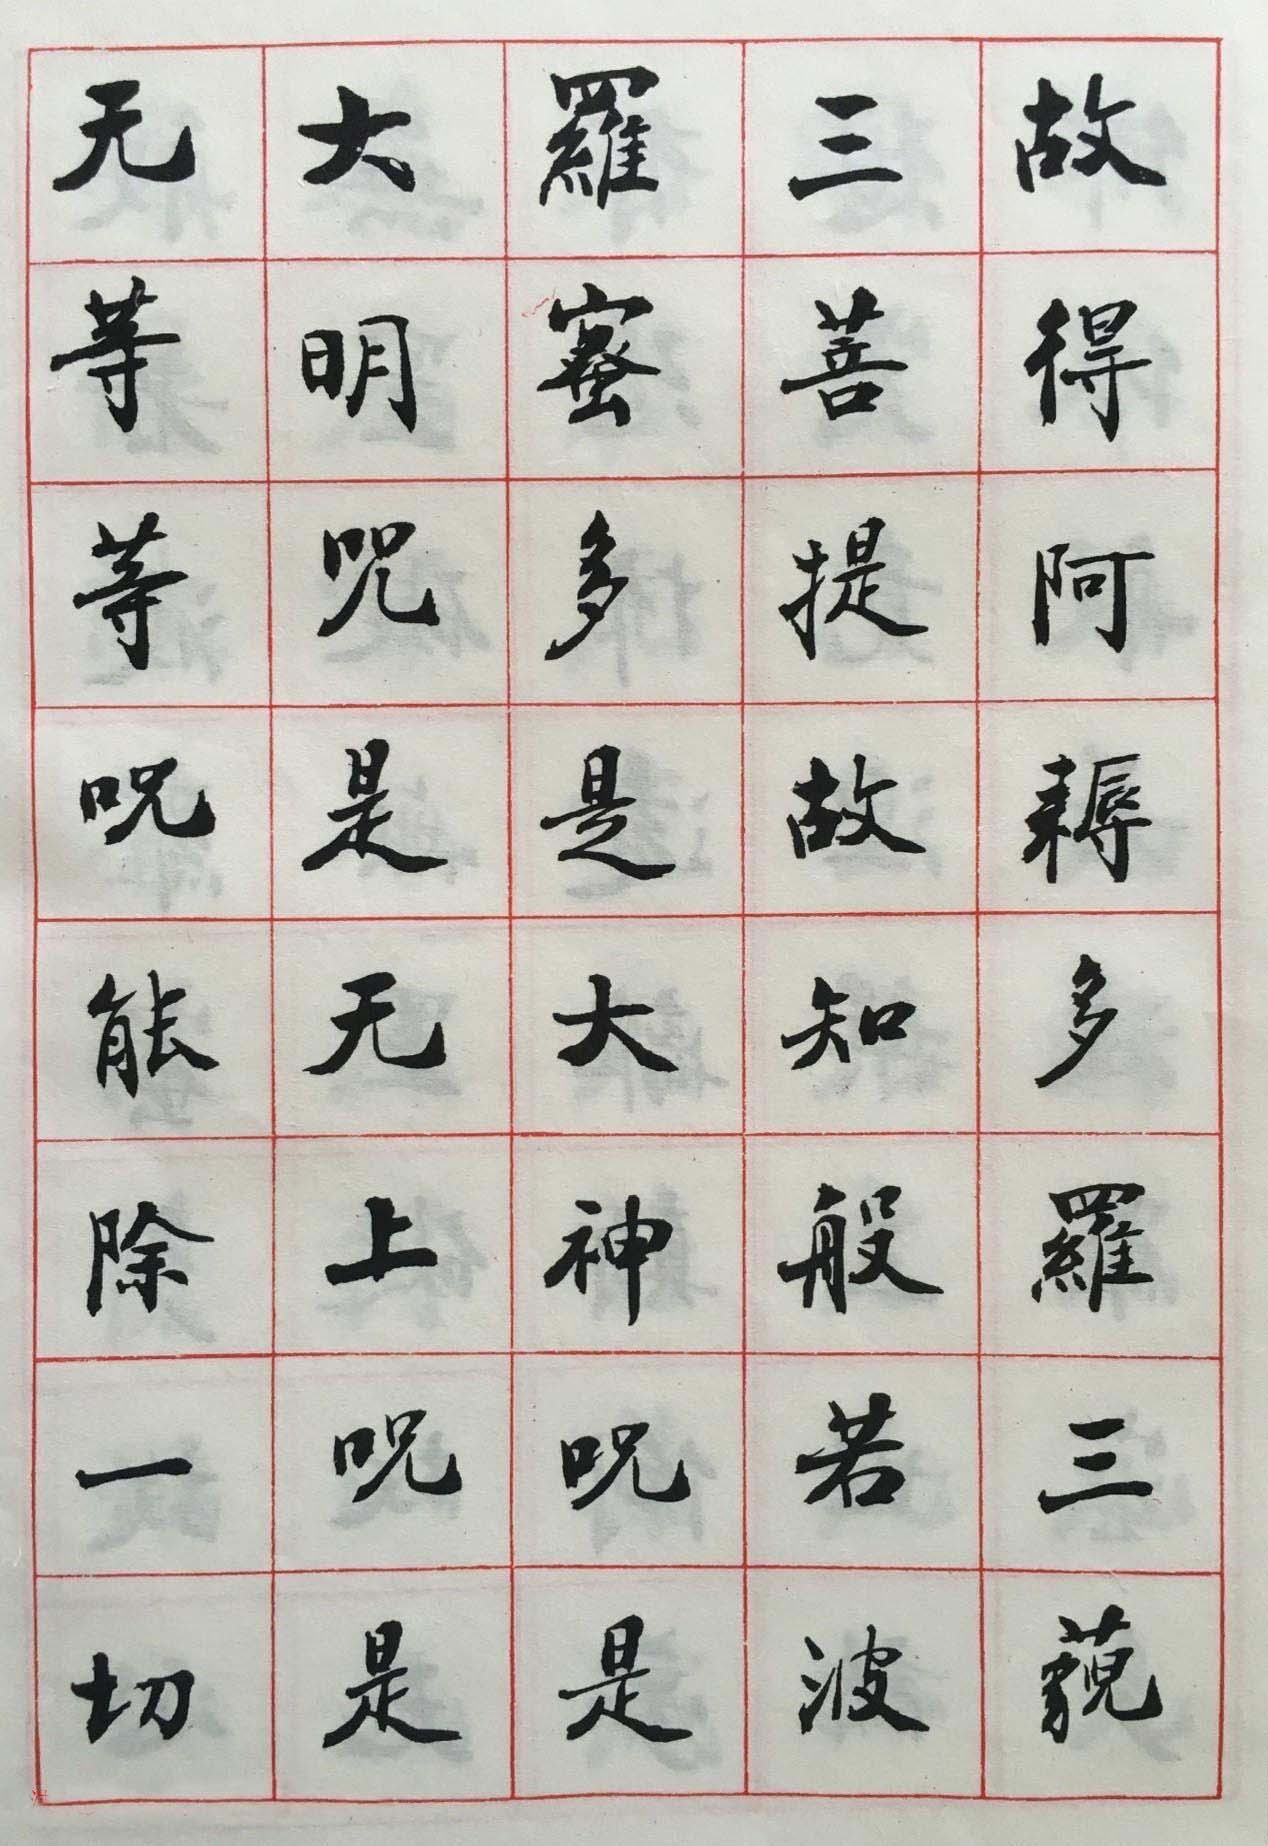 故得阿耨多羅三藐
三菩提故知般若波
羅蜜多是大神呪是
大明呪是无上呪是
无等等呪能除一切